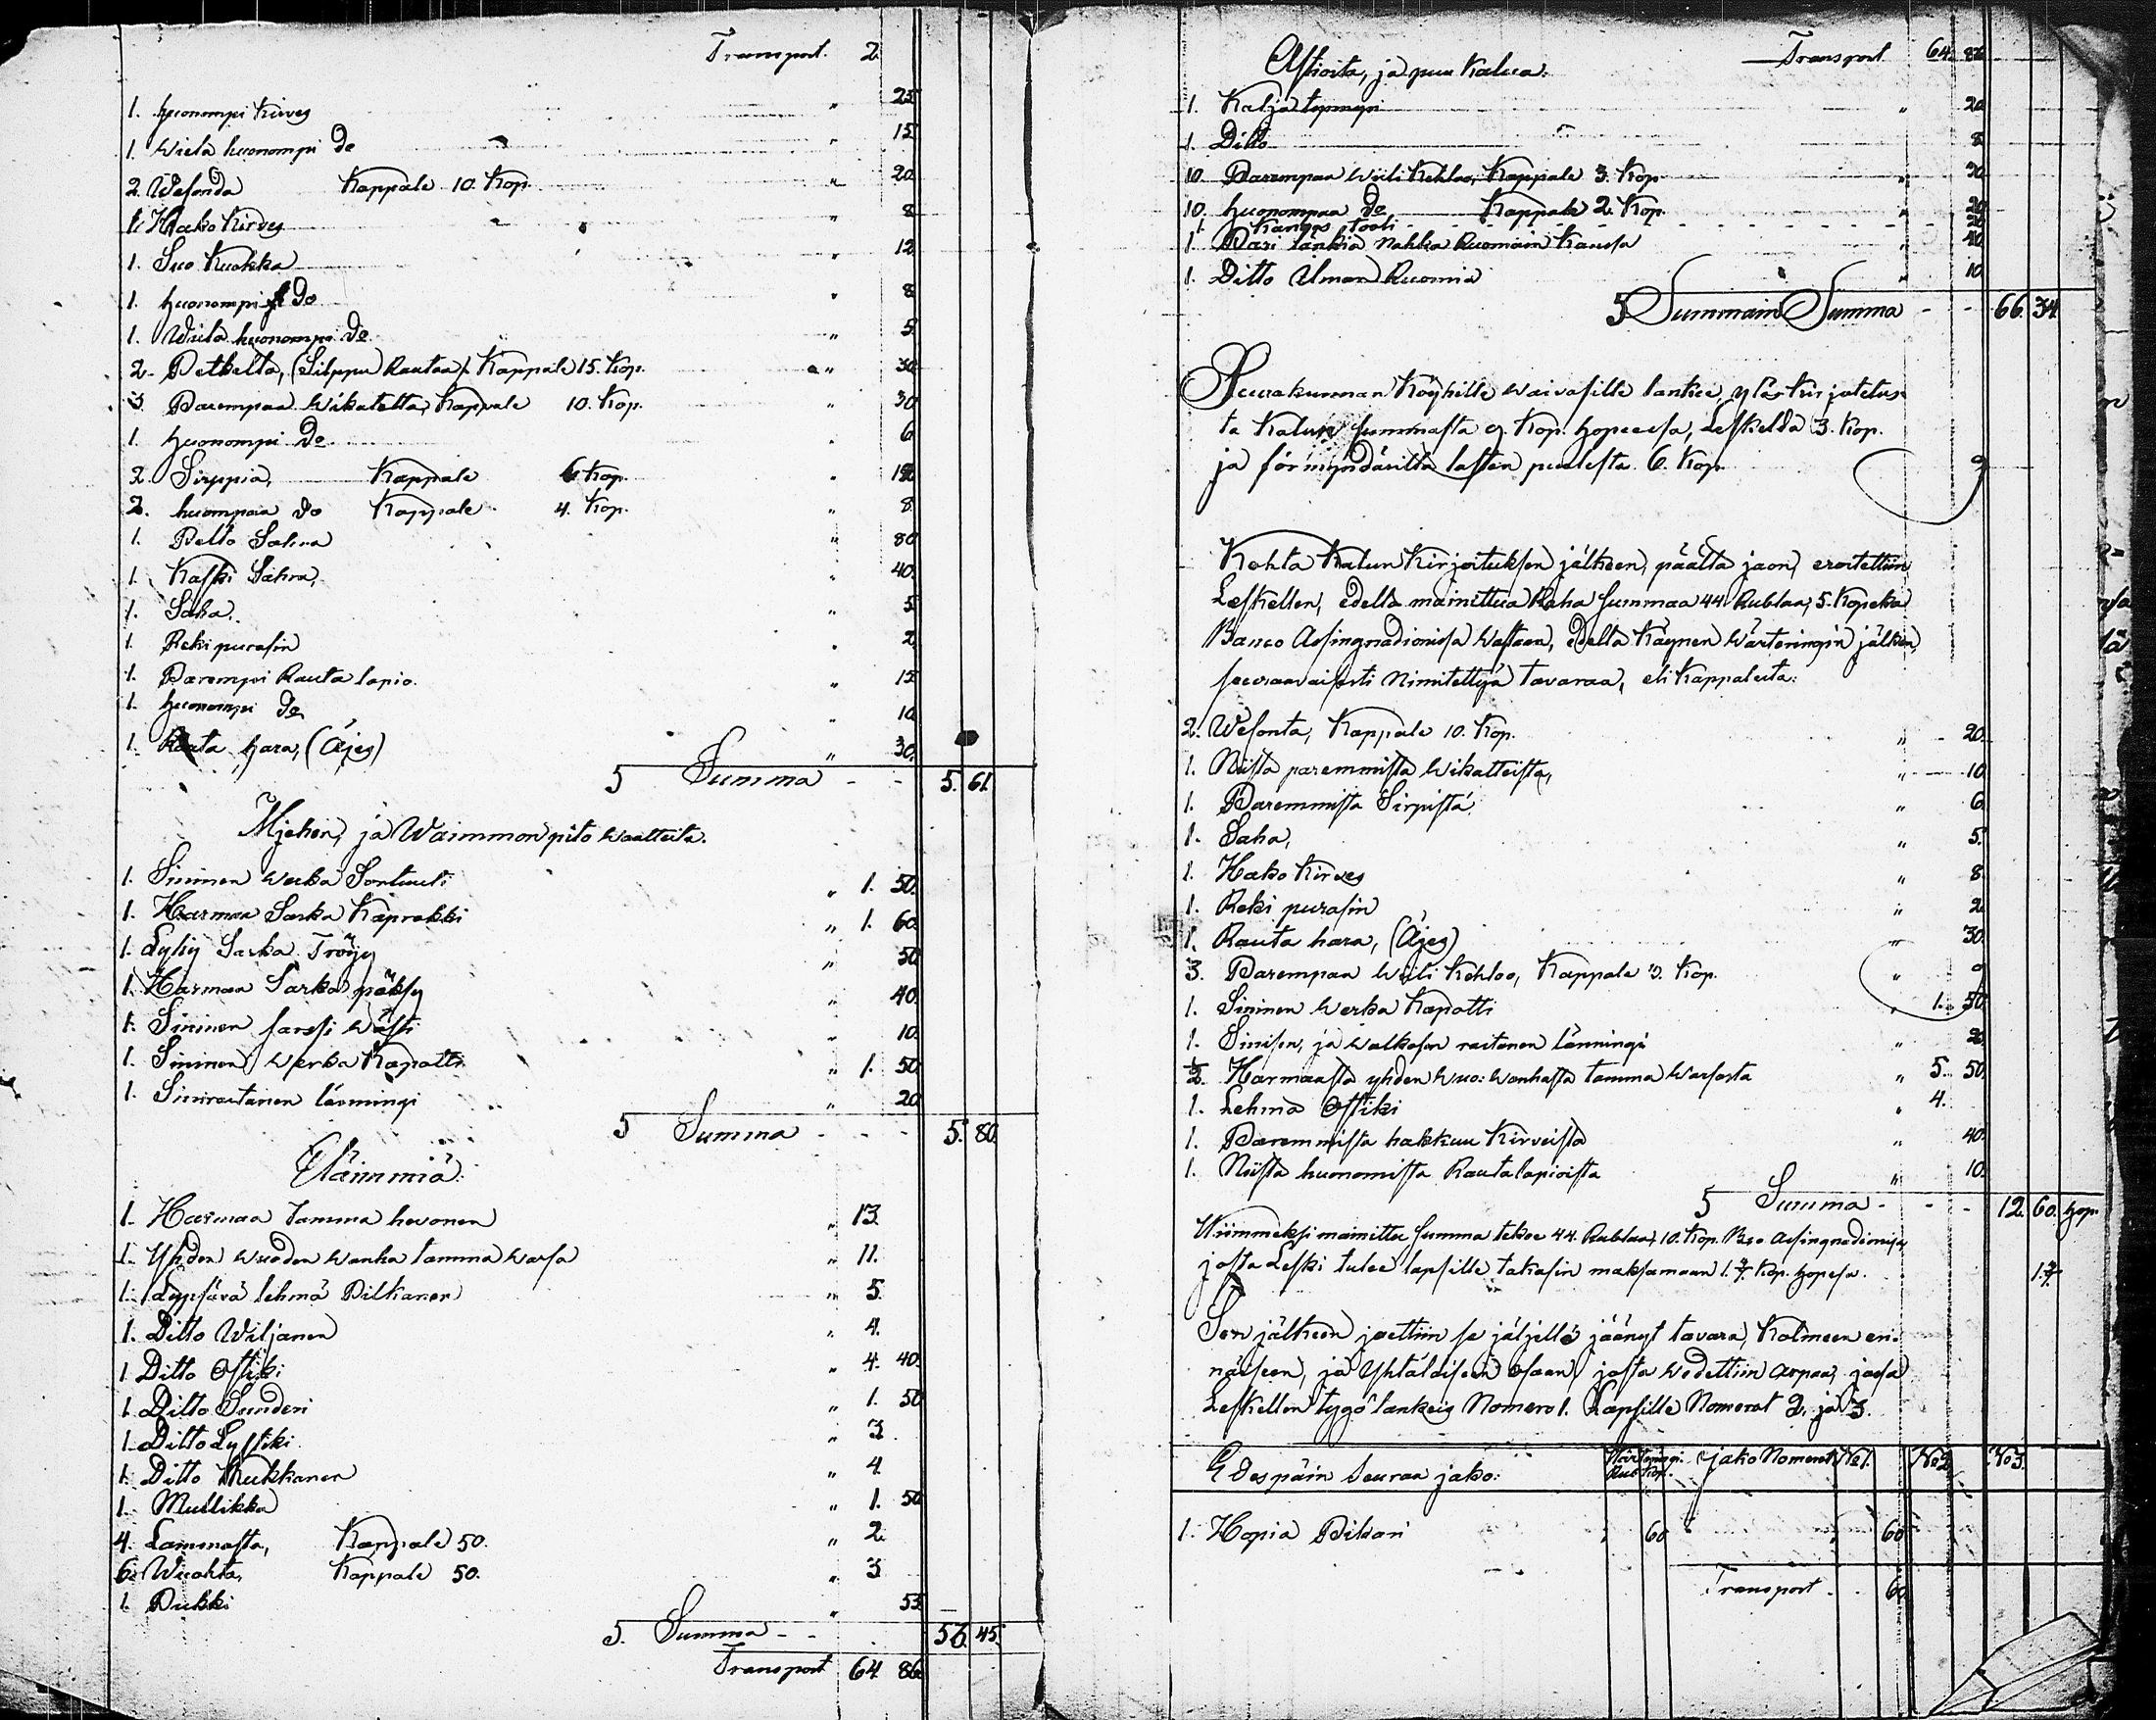 Transport. 2
1. huonompi kirves " 25
1. Wielä huonompi do " 15
2. Wesonda Kappale 10. Kop. " 20
1. Hako kirves " 8
1. Suo Kuokka " 12
1. huonompi do " 8
1. Wielä huonompi do " 5
2. Petkelta, (Silppu Rautaa) Kappale 15. Kop. " 30
3. Parempaa Wikatetta, Kappale 10. Kop. " 30
1. huonompi do " 6
2. Sirppia, Kappale 6 Kop. " 12
2. huompaa do Kappale 4. Kop. " 8
1. Pelto Sahra " 80
1. Kaski Sahra, " 40.
1. Saha. " 5
1. Reki purasin " 2
1. Parempi Rauta lapio. " 15
1. huonompi do " 10
1. Rauta hara, (Äjes) " 30.
5 Summa - - 5. 61.
Mjehen, ja Waimmon pito waatteita.
1. Sininen werka Sortuuti " 1. 50.
1. Harmaa Sarka Kaprokki " 1. 60
1. Lyhy Sarka Tröyy " 50
1. Harmaa Sarka pöksy " 40.
1. Sininen sarssi wästi " 10.
1. Sininen Werka Kapotti " 1. 50
1. Siniraitanen länningi " 20
5 Summa - - - 5. 80.
Eläimmiä.
1. Harmaa tamma hevonen " 13.
1. Yhden wuoden wanha tamma warsa " 11.
1. Lypsävä lehmä Pilkanen " 5.
1. Ditto Wiljanen " 4.
1. Ditto Ostiki " 4. 40.
1. Ditto Sunderi " 1. 50
1. Ditto Lystiki " 3
1. Ditto Kukkanen " 4.
1. Mullikka " 1. 50
4. Lammasta, Kappale 50. " 2.
6. Wuohta, Kappale 50. " 3
1. Pukki " 55
5. Summa - - 56. 45.
Transport 64. 86.
Astioita, ja puu kalua. Transport 64. 86.
1. Kalja tynnyri " 20
1. Ditto 8
10. Parempaa wiili kehloo, Kappale 3. Kop. " 30
10. huonompaa do Kappale 2. Kop. " 20
1. Kangas tooli - - - 20
1. Pari länkiä Nahka Ruomain kanssa " 40
1. Ditto ilman Ruomia " 10
5 Summain Summa - - 66. 34
Seurakunnan Köyhille waivasille lankee ylös kirjotetus-
ta Kalun summasta 9. Kop. hopeessa, Leskeldä 3. Kop.
ja förmyndäriltä lasten puolesta 6. Kop. 9
Kohta Kalun Kirjoituksen jälkeen, päältä jaon, eroitettiin
Leskellen, edellä mainittua Raha summaa 44. Rublaa, 5. Kopeka
Banco Assingnadionissa Wastaan, edellä käynen wärteringin jälken,
seuraavaisesti Nimitettyä tavaraa, eli kappaleita:
2. Wesonta, Kappale 10. Kop. " 20.
1. Niistä paremmista Wikatteista, " 10
1. Paremmista Sirpistä " 6
1. Saha, " 5.
1. Hako Kirves " 8
1. Reki purasin " 2
1. Rauta hara, (Äjes) " 30.
3. Parempaa Wiili Kehloo, Kappale 3. Kop. " 9
1. Sininen Werka Kapotti " 1. 50.
1. Sinisen, ja walkosen raitanen länningi " 20.
1/2. Harmaasta yhden wuo: wanhasta tamma warsasta " 5. 50.
1. Lehmä Ostiki " 4.
1. Paremmista hakkuu Kirveistä " 40.
1. Niistä huonomista Rautalapioista " 10.
5 Summa - - - 12. 60. hop.
Wiimmeksi mainittu summa tekee 44. Rublaa, 10. Kop. Bco Assingnadionissa
josta Leski tulee lapsille takasin maksamaan 1. 3/7. Kop. hopesa. 1. 3/7.
Sen jälkeen jaettiin se jäljellä jäänyt tavara, Kolmeen eri-
näiseen, ja Yhtäläiseen Osaan, josta wedettiin arpaa, jossa
Leskellen tygö lankeis Nomero 1. Lapsille Nomerot 2. ja 3.
Edespäin seuraa jako: Wärteringi Rub Kop. Jako Nomerot No 1. No 2. No 3.
1. Hopia Pikari " 60 60
Transport. 60